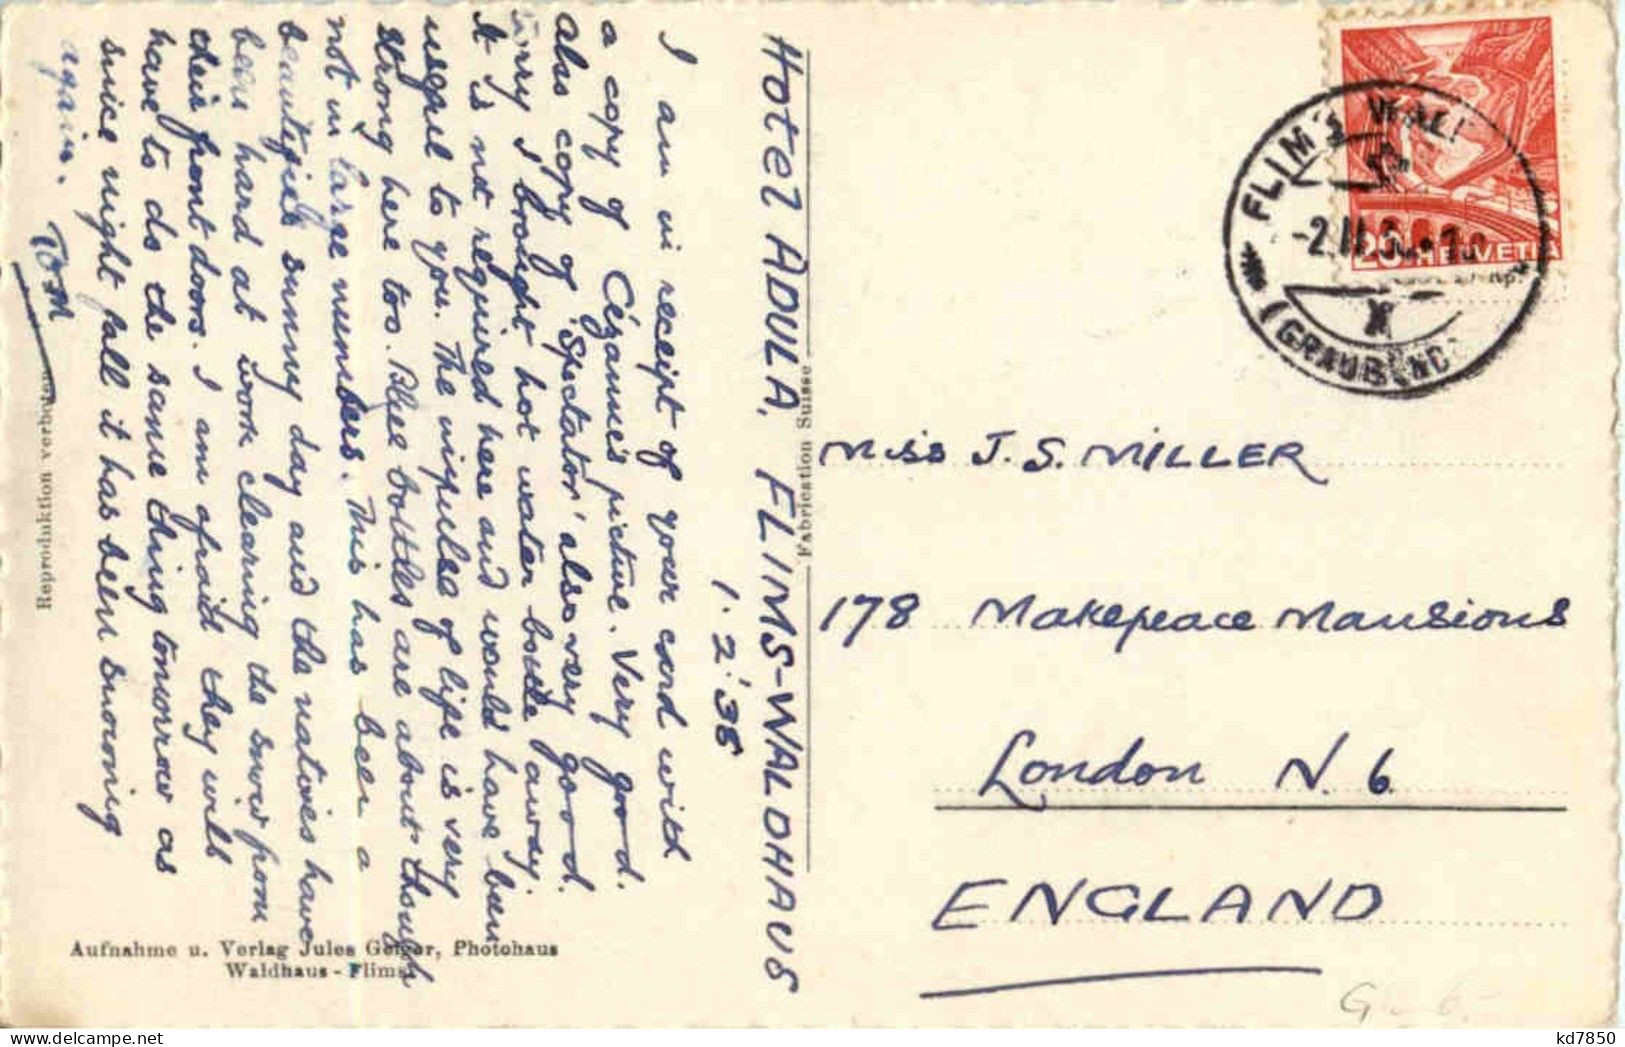 HOTEL ADULA, FLIMS-WALDHAUS
1.2.'38
I am in receipt of your card with
a copy of Cézanne's picture. Very good.
Also copy of 'Spectator' also very good.
Sorry I brought hot water bottle away.
It is not required here and would have been
useful to you. The impulse of life is very
strong here too. Blue bottles are about though
not in large numbers. This has been a
beautiful sunny day and the natives have
been hard at work clearing the snow from
their front doors. I am afraid they will
have to do the same thing tomorrow as
since night fall it has been snowing
again.
Tom
Reproduktion verboten
Aufnahme u. Verlag Jules Geiger, Photohaus
Waldhaus - Flims
Fabrication Suisse
FLIMS WAL
-2.II.
(GRAUBÜND
20 HELVETIA
Miss J. S. MILLER
178 Makepeace Mansions
London N. 6.
ENGLAND
kd7850